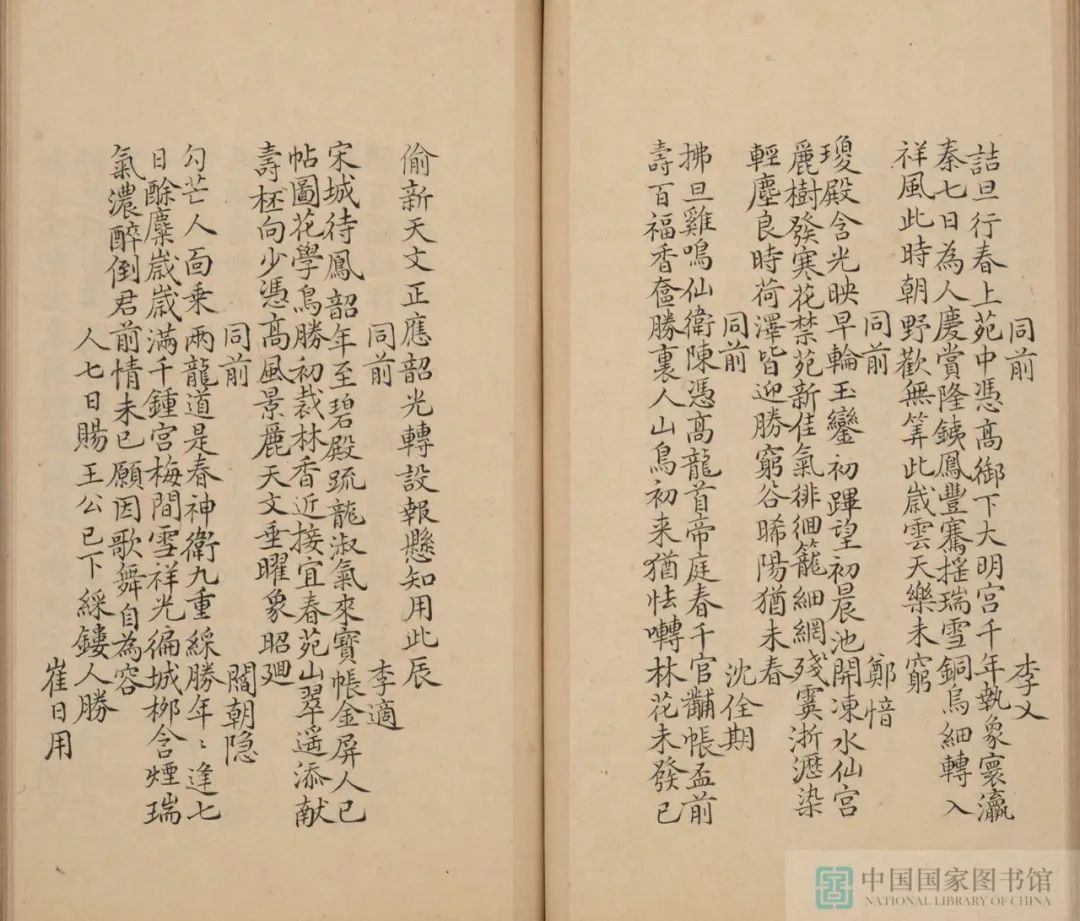 同前 李乂
詰旦行春上苑中憑髙御下大明宫千年執象寰瀛
泰七日為人慶賞隆鐵鳳豐騫摧瑞雪銅烏細轉入
祥風此時朝野歡無筭此歳雲天樂未窮
同前 鄭愔
瓊殿含光映早輪玉鑾初蹕望初晨池開凍水仙宮
麗樹發寒花禁苑新佳氣徘徊籠細網殘霙淅瀝染
輕塵良時荷澤皆迎勝窮谷晞陽猶未春
同前 沈佺期
拂旦雞鳴仙衛陳憑髙龍首帝庭春千官黼帳盃前
壽百福香奩勝裏人山鳥初来猶怯囀林花未發已
偷新天文正應韶光轉設報懸知用此辰
同前 李適
宋城待鳳韶年至碧殿疏龍淑氣來寶帳金屏人已
帖圖花學鳥勝初裁林香近接宜春苑山翠遥添献
壽桮向少憑髙風景麗天文垂曜象昭廻
同前 閻朝隐
勾芒人靣乗兩龍道是春神衛九重綵勝年〻逢七
日酴麋歳歳滿千鍾宫梅間雪祥光徧城桞含煙瑞
氣濃醉倒君前情未已願因歌舞自為容
人七日賜王公已下綵鏤人勝
崔日用
中国国家图书馆
NATIONAL LIBRARY OF CHINA